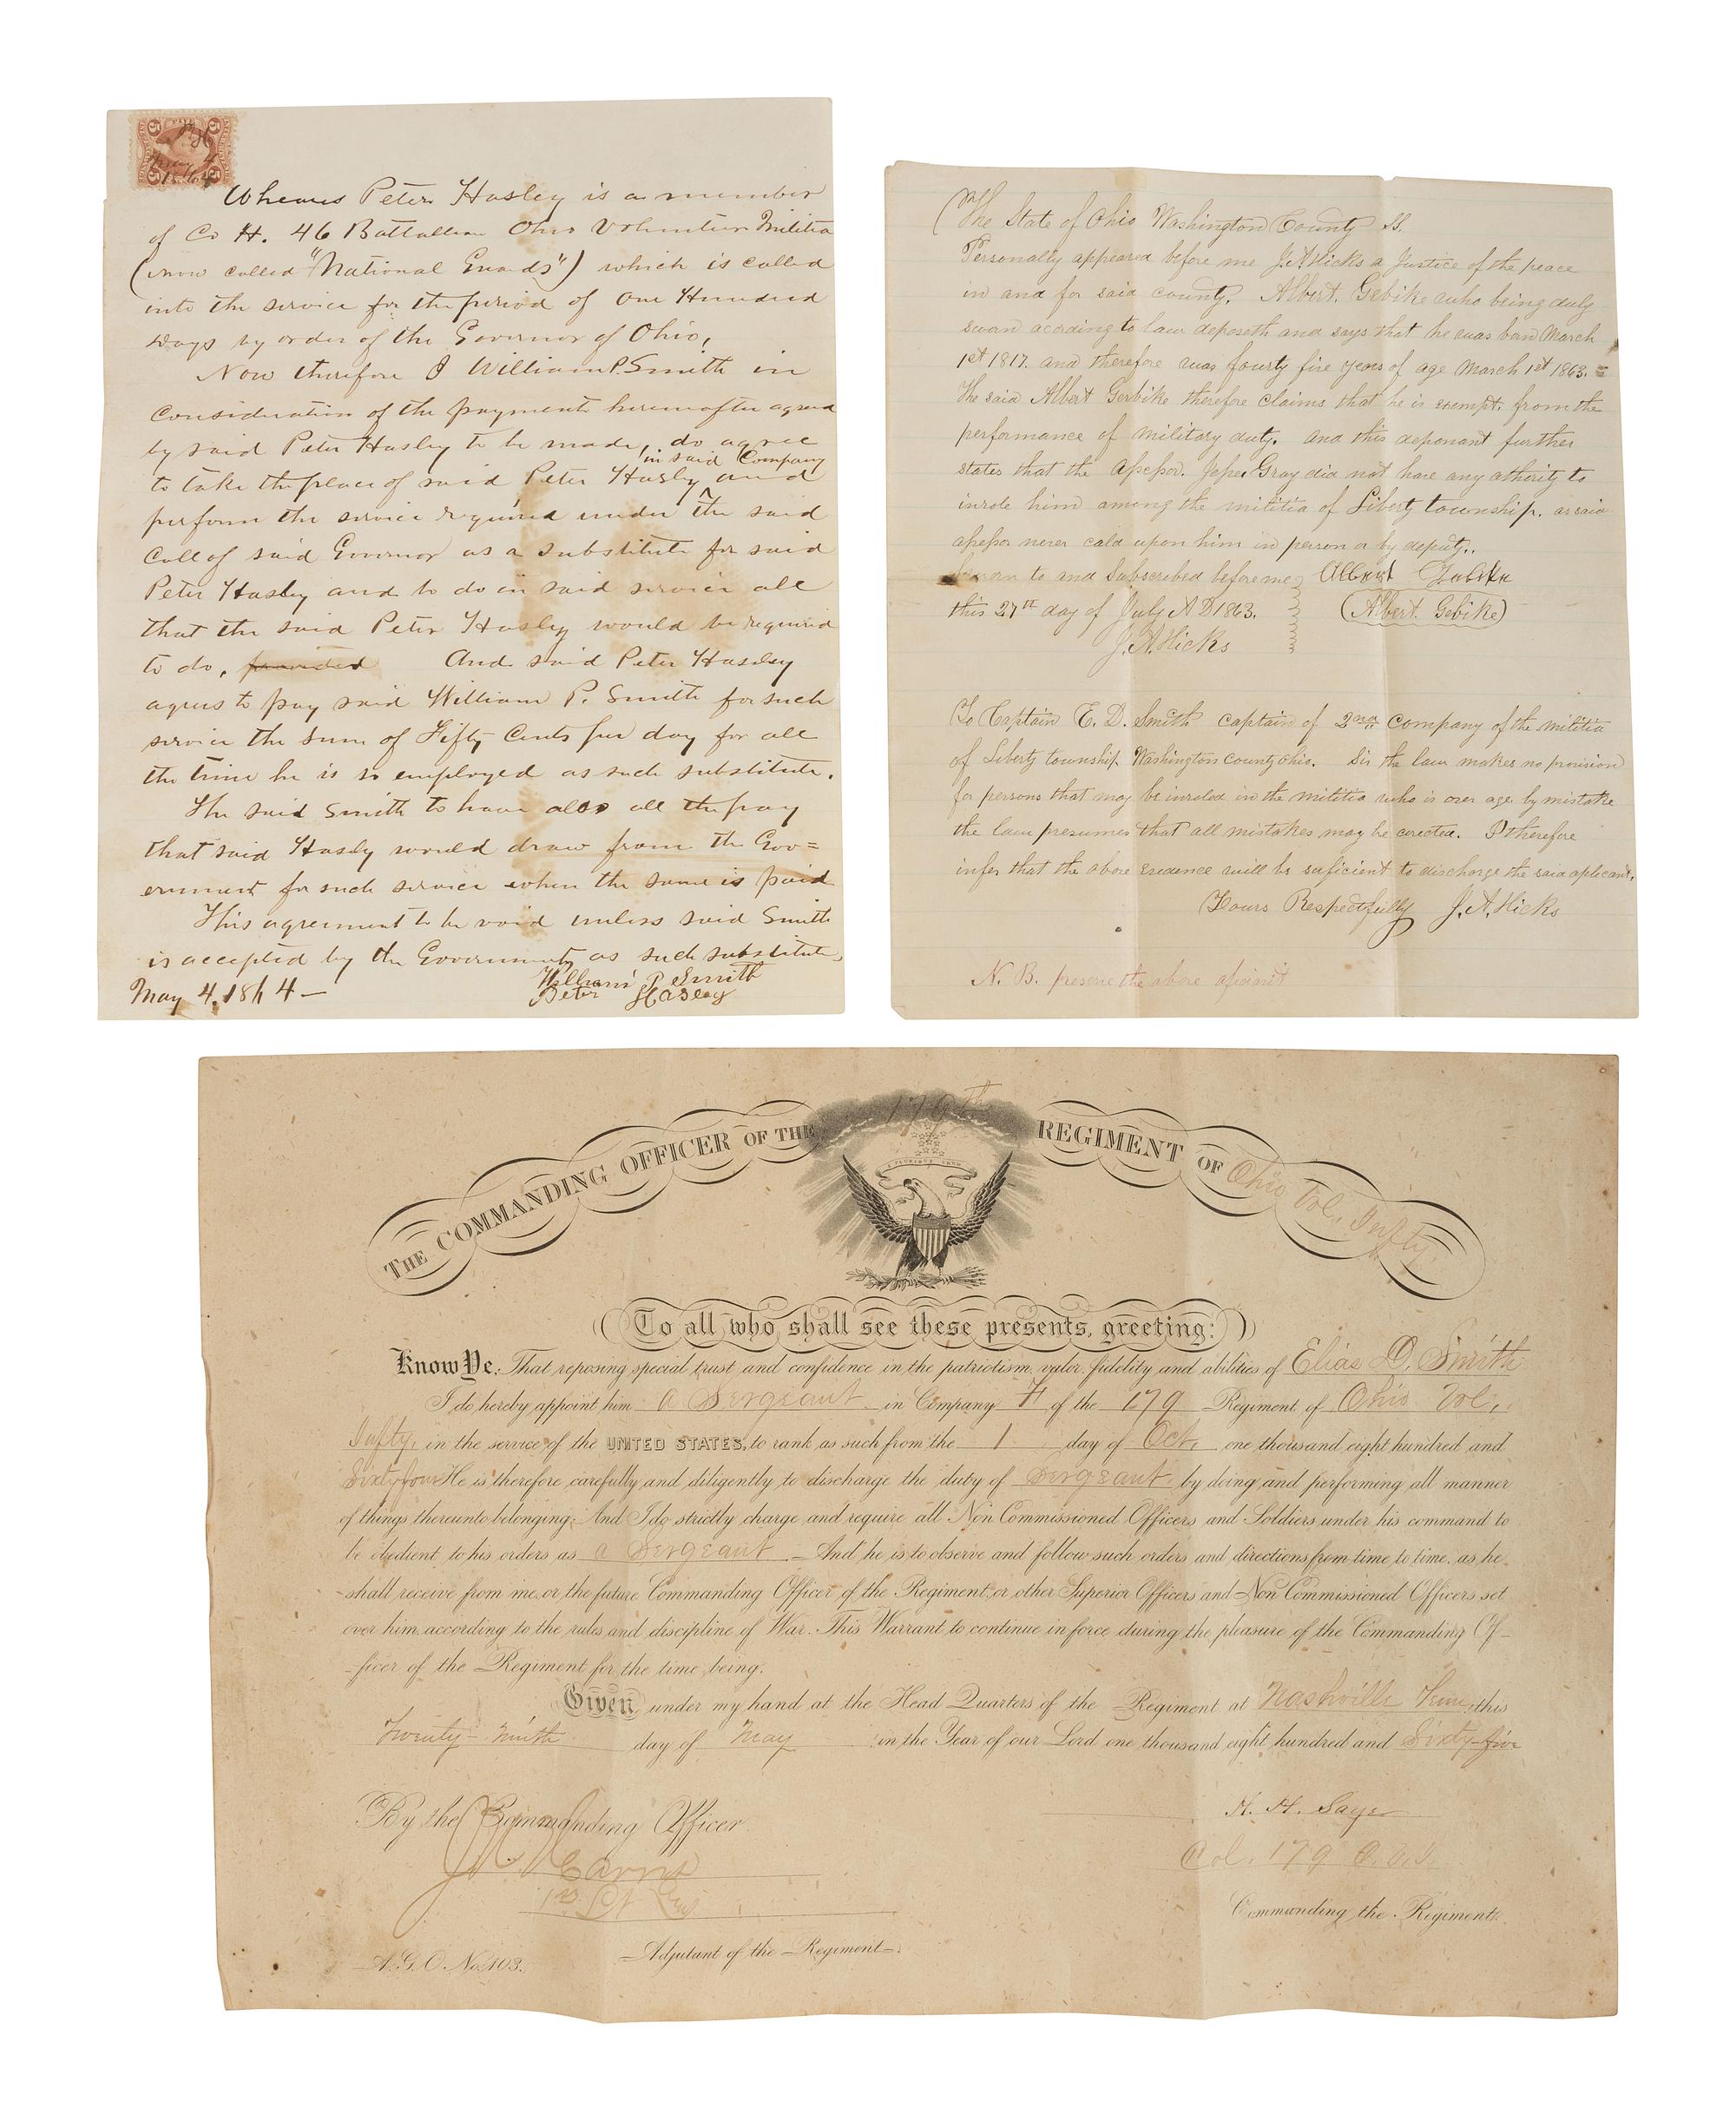 5 FIVE 5
PH
May 4
1864
Whereas Peter Hasley is a member
of Co H. 46 Battallion Ohio Volunteer Militia
(now called "National Guards") which is called
into the service for the period of One Hundred
days by order of the Governor of Ohio,
Now therefore I William P. Smith in
consideration of the payments hereinafter agreed
by said Peter Hasley to be made, do agree
in said Company
to take the place of said Peter Hasley ^ and
perform the service required under the said
call of said Governor as a substitute for said
Peter Hasley and to do in said service all
that the said Peter Hasley would be required
to do, provided And said Peter Hasley
agrees to pay said William P. Smith for such
service the sum of Fifty Cents per day for all
the time he is so employed as such substitute.
The said Smith to have also all the pay
that said Hasly would draw from the Gov=
ernment for such service when the same is paid
This agreement to be void unless said Smith
is accepted by the Government as such substitute,
May 4. 1864 — William P Smith
Peter Hasley
The State of Ohio Washington County SS.
Personally appeared before me J. A Hicks a Justice of the peace
in and for said county. Albert. Gebike who being duly
sworn acording to law deposeth and says that he was born March
1st 1817. and therefore was fourty five years of age March 1st 1863.
The said Albert Gerbike therefore claims that he is exempt. from the
performance of military duty. and this deponant further
states that the Assessor. Jesse Gray did not have any athority to
inrole him among the militia of Liberty township. as said
assessor never cald upon him in person or by deputy..
Sworn to and Subscribed before me Albert Gebike
this 27th day of July A D 1863. (Albert. Gebike)
J. A. Hicks
To Captain E. D. Smith captain of 2nd company of the militia
of Liberty township Washington county Ohio. Sir the law makes no provision
for persons that may be inroled in the militia who is over age by mistake
the law presumes that all mistakes may be corected. I therefore
infer that the above evedence will be suficient to discharge the said aplicant.
Yours Respectfully J. A. Hicks
N. B. preserve the above afidavit
179th
THE COMMANDING OFFICER OF THE REGIMENT OF Ohio Vol. Infty.
E PLURIBUS UNUM
To all who shall see these presents, greeting:
Know Ye: That reposing special trust and confidence in the patriotism, valor, fidelity and abilities of Elias D. Smith
I do hereby appoint him a Sergeant in Company H of the 179 Regiment of Ohio Vol,
Infty, in the service of the UNITED STATES, to rank as such from the 1 day of Oct, one thousand eight hundred and
Sixty four He is therefore carefully and diligently to discharge the duty of Sergeant by doing and performing all manner
of things thereunto belonging. And I do strictly charge and require all Non Commissioned Officers and Soldiers under his command to
be obedient to his orders as a Sergeant And he is to observe and follow such orders and directions from time to time, as he
shall receive from me, or the future Commanding Officer of the Regiment, or other Superior Officers and Non Commissioned Officers set
over him, according to the rules and discipline of War. This Warrant to continue in force during the pleasure of the Commanding Of-
-ficer of the Regiment for the time being.
Given under my hand at the Head Quarters of the Regiment at Nashville Tenn, this
Twenty-Ninth day of May in the Year of our Lord one thousand eight hundred and Sixty-five
By the Commanding Officer. H. H. Sage
Col. 179 O.V.I.
Commanding the Regiment.
Adjutant of the Regiment.
A.G.O. No. 103.